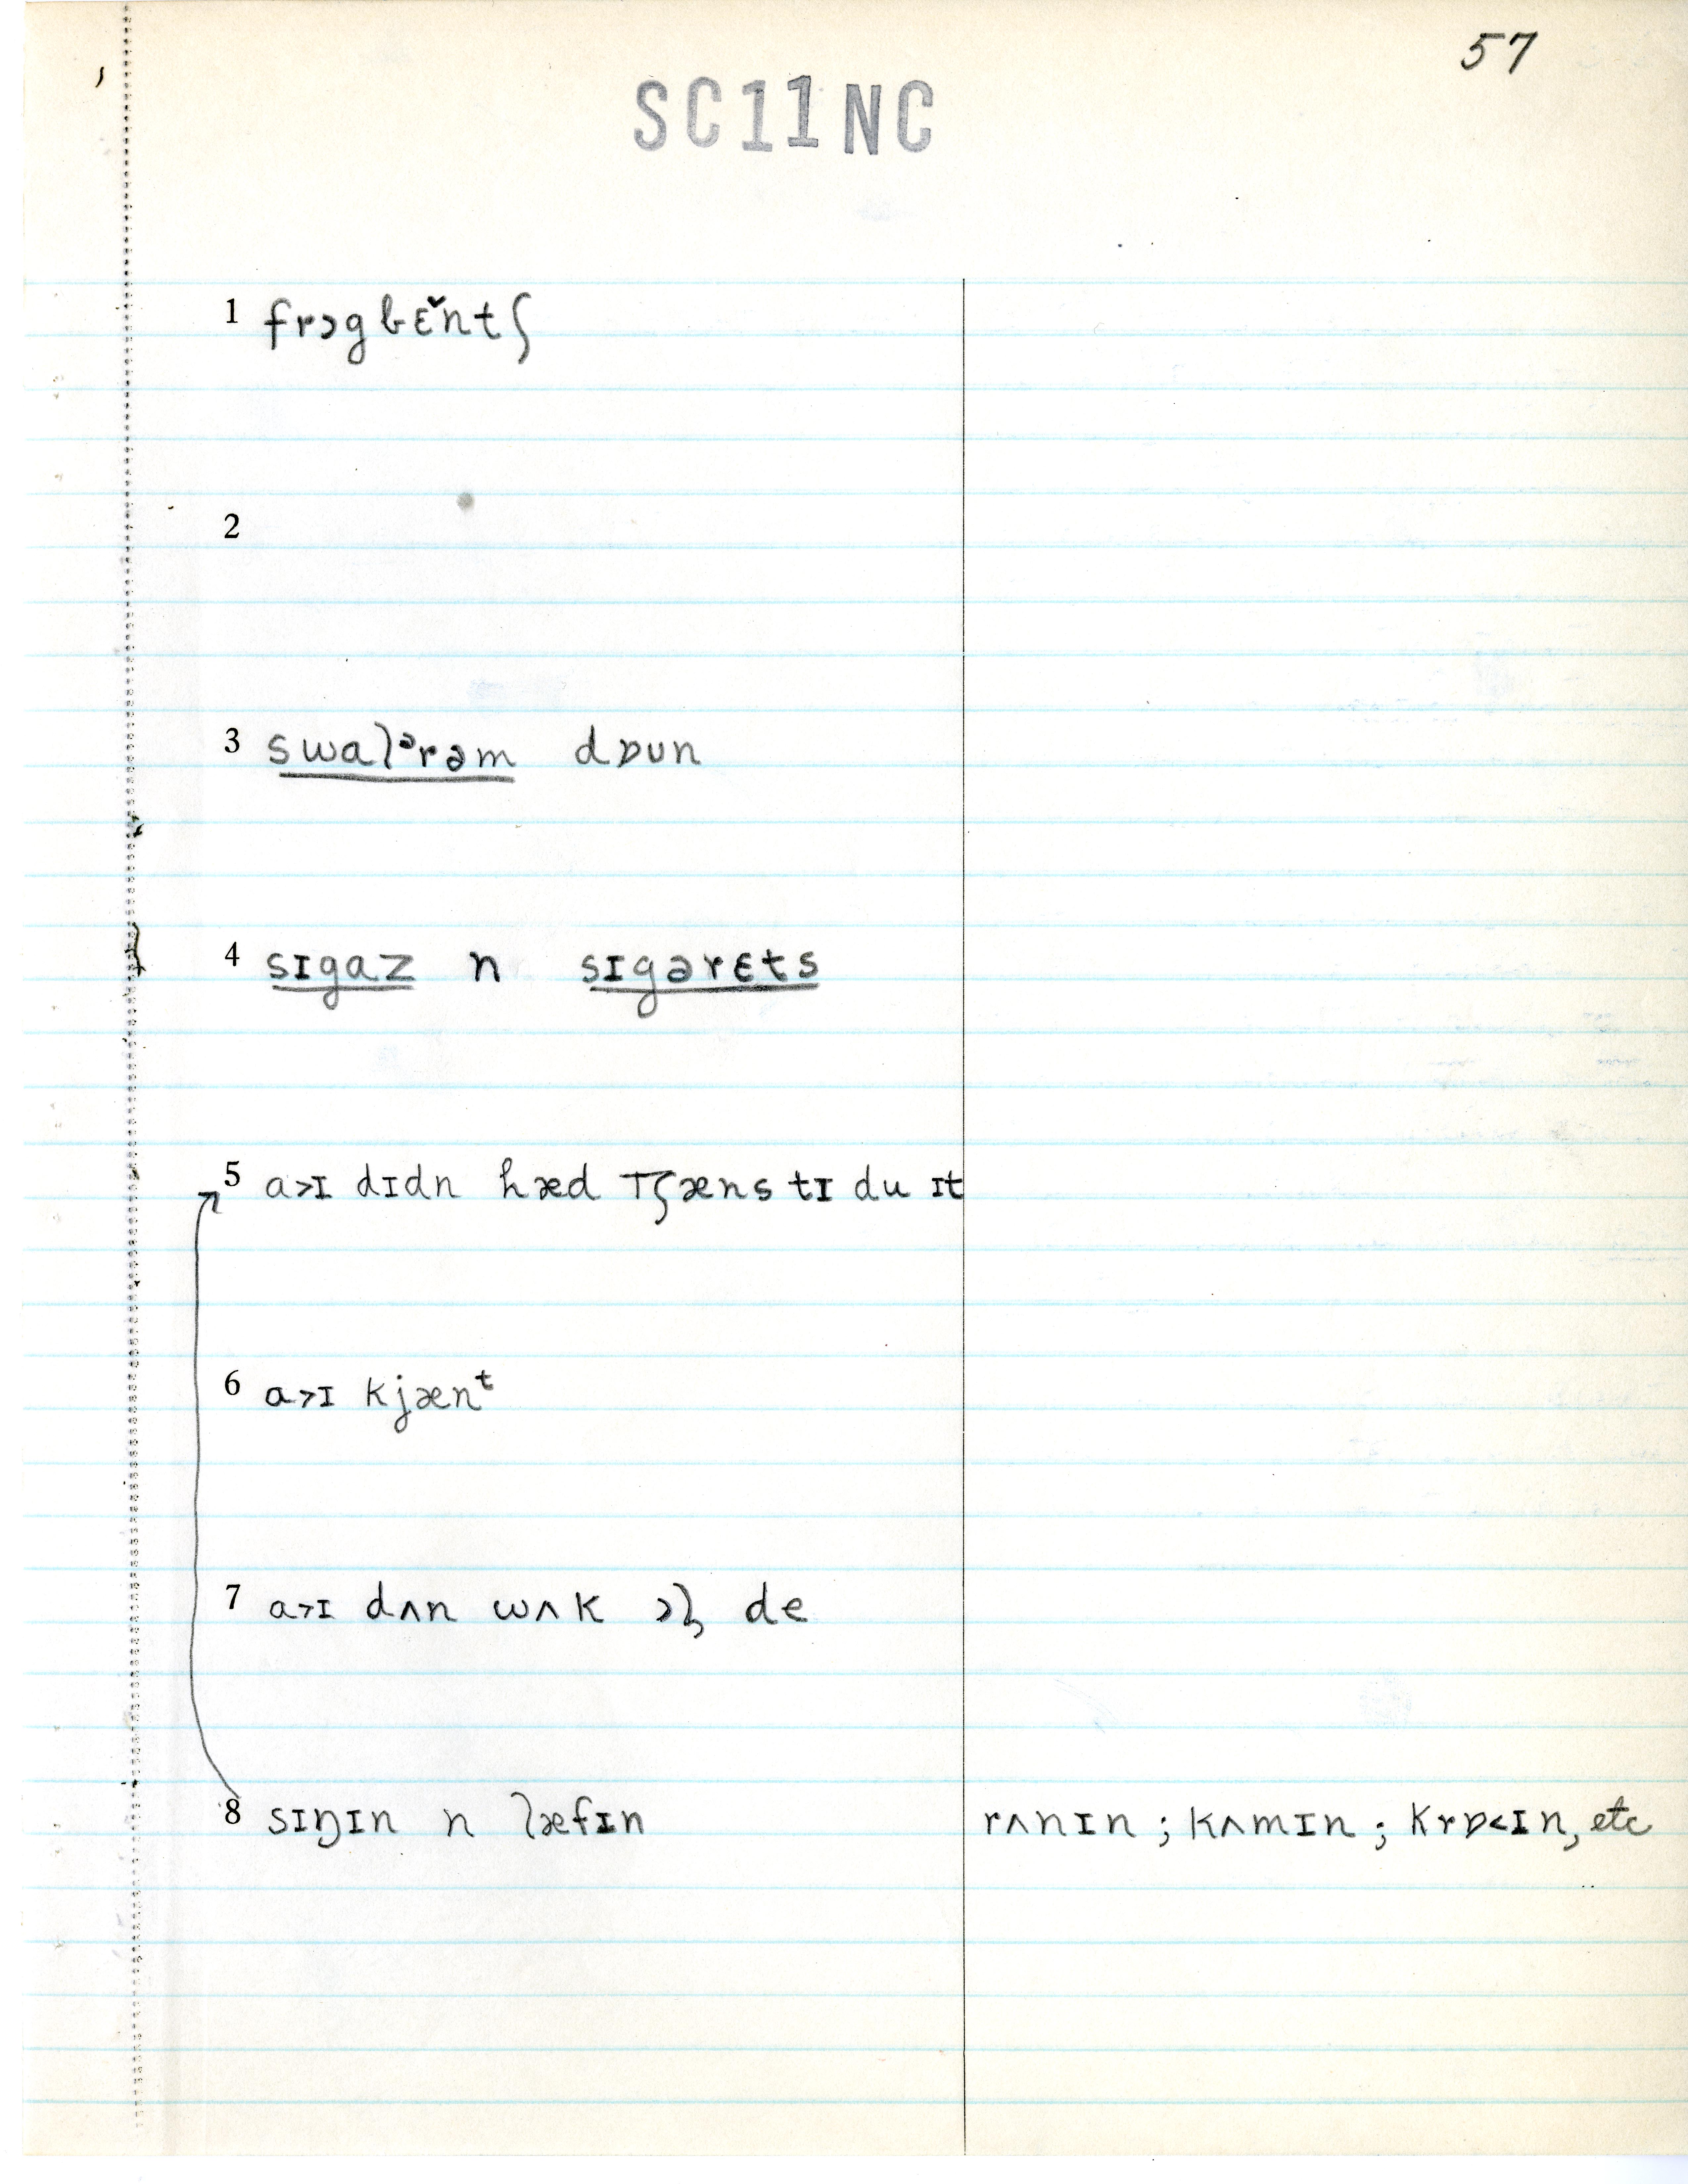 57
SC11NC
1 frɔgbɛ̌ntʃ
2
3 swalᵊrəm dɒun
4 sɪgaz n sɪgərɛts
5 a>ɪ dɪdn hæd tʃæns tɪ du ɪt
6 a>ɪ kjænᵗ
7 a>ɪ dʌn wʌk ɔl̥ de
8 sɪŋɪn n læfɪn rʌnɪn ; kʌmɪn ; krɒ<ɪn, etc